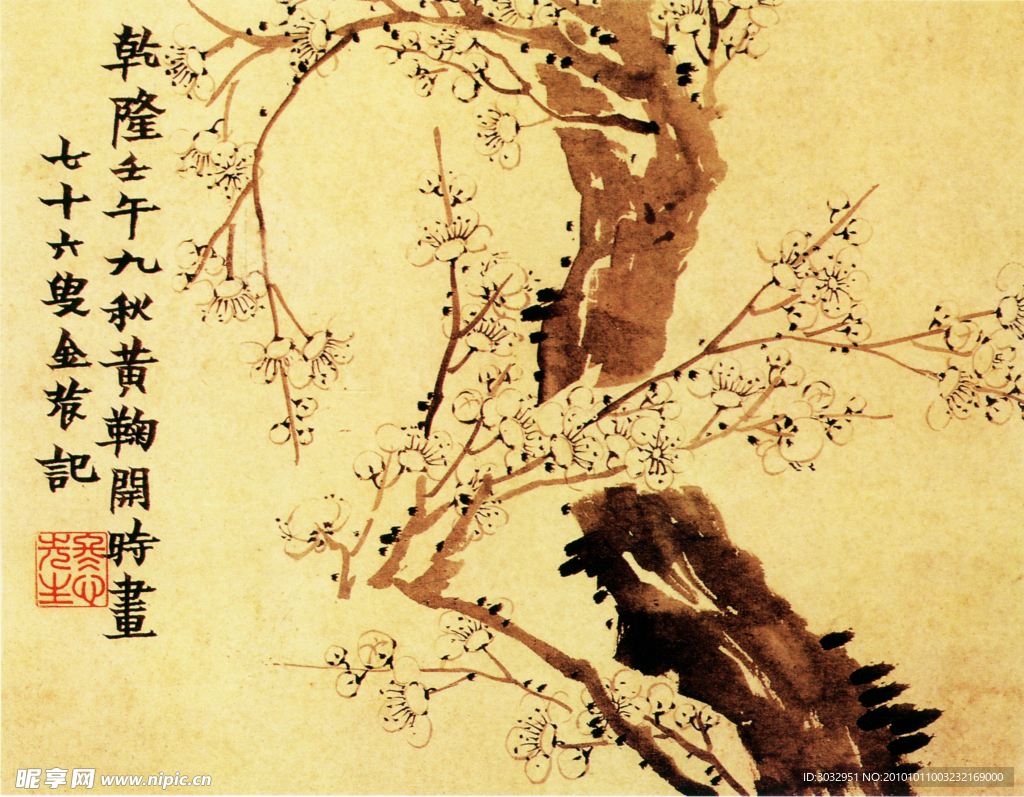 乾隆壬午九秋黄鞠開時畫
七十六叟金農記
冬心
先生
昵享网 www.nipic.cn
ID:3032951 NO:20101011003232169000